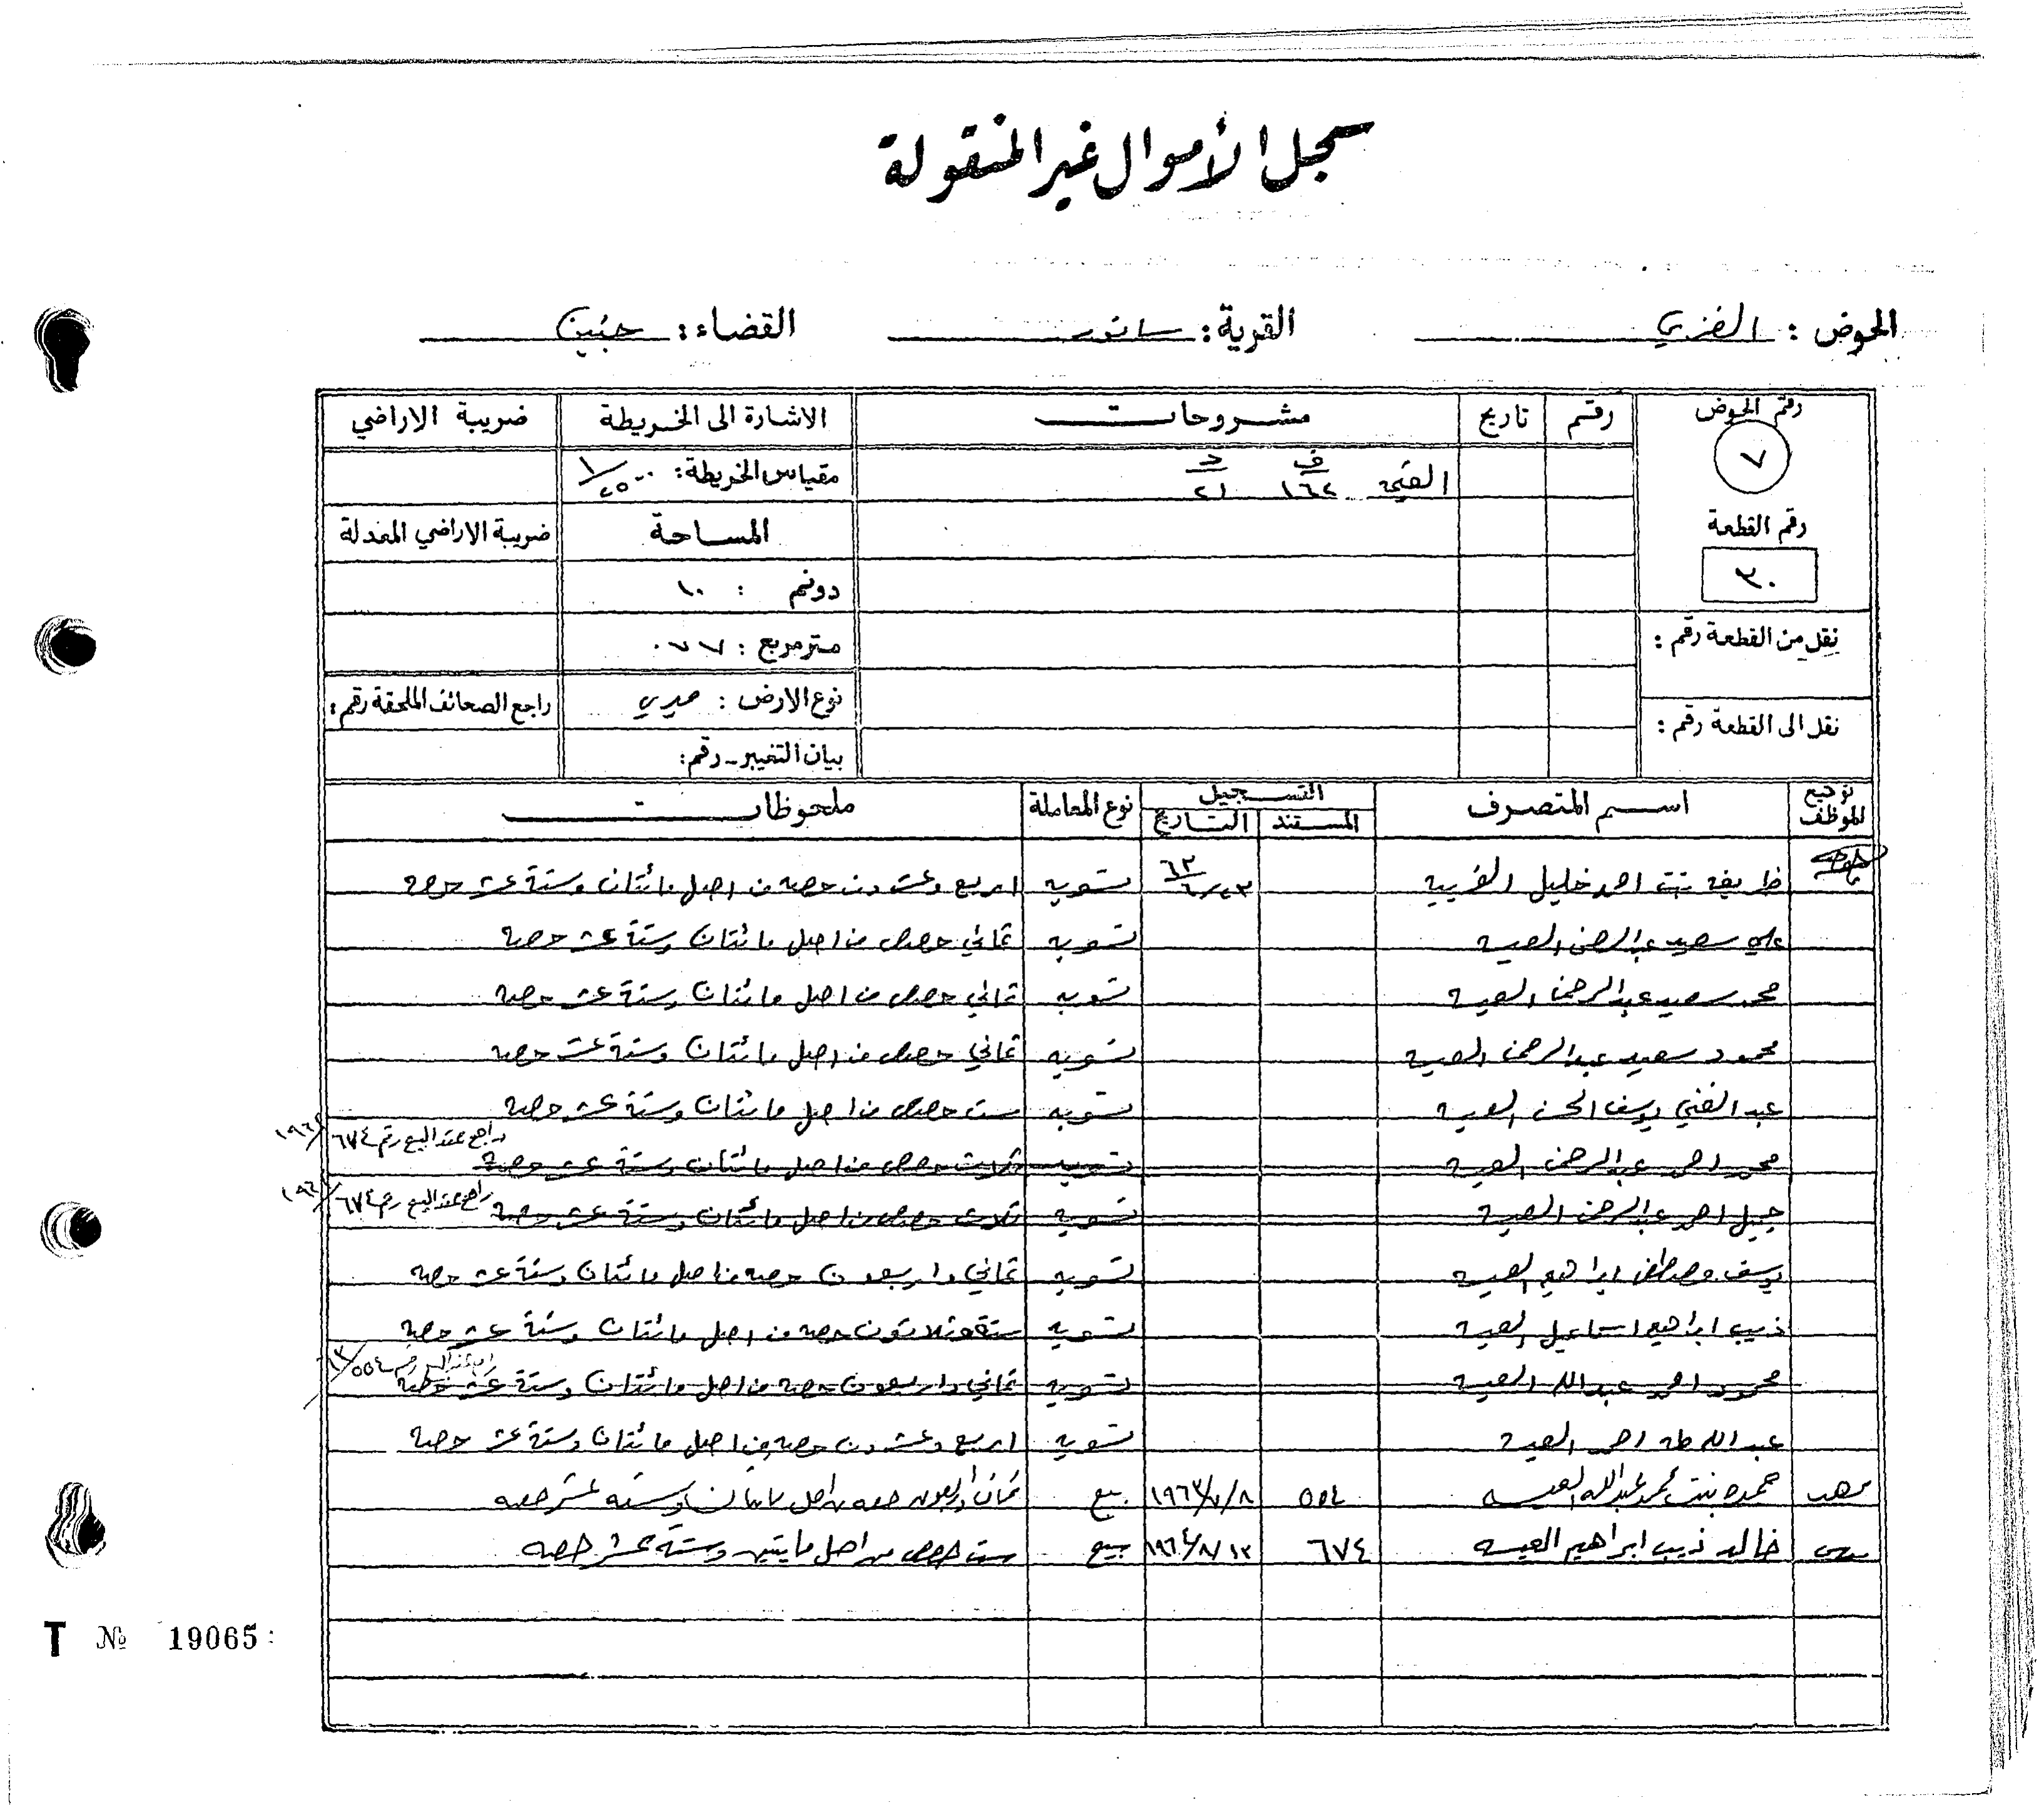 سجل الأموال غير المنقولة
الحوض : الغربي القرية : سانور القضاء : جنين
رقم الحوض رقم تاريخ مشروحات الاشارة الى الخريطة ضريبة الاراضي
٧ ف د
القيمة ١٦٢ ٢١ مقياس الخريطة : ١/٢٥٠٠
رقم القطعة المساحة ضريبة الاراضي المعدلة
٣٠ دونم : ١٠
نقل من القطعة رقم : متر مربع : ٠٧٧
نوع الارض : ميري راجع الصحائف الملحقة رقم :
نقل الى القطعة رقم :
بيان التغيير - رقم :
توقيع الموظف اسم المتصرف التسجيل نوع المعاملة ملحوظات
المستند التاريخ
بنت احمد خليل تسويه اربع وعشرون حصه من اصل مائتان وستة عشر حصه
علي سعيد عبد الرحمن العيسه تسويه ثماني حصص من اصل مائتان وستة عشر حصه
محمد سعيد عبد الرحمن العيسه تسويه ثماني حصص من اصل مائتان وستة عشر حصه
محمود سعيد عبد الرحمن العيسه تسويه ثماني حصص من اصل مائتان وستة عشر حصه
عبد الغني يوسف الحسن العيسه تسويه ست حصص من اصل مائتان وستة عشر حصه
راجع عقد البيع رقم ٦٧٤
محمد احمد عبد الرحمن العيسه تسويه ثلاث حصص من اصل مائتان وستة عشر حصه
راجع عقد البيع رقم ٦٧٤
جميل احمد عبد الرحمن العيسه تسويه ثلاث حصص من اصل مائتان وستة عشر حصه
يوسف مصطفى ابراهيم العيسه تسويه ثماني واربعون حصه من اصل مائتان وستة عشر حصه
ذيب ابراهيم اسماعيل العيسه تسويه ستة وثلاثون حصه من اصل مائتان وستة عشر حصه
محمود احمد عبد الله العيسه تسويه ثماني واربعون حصه من اصل مائتان وستة عشر حصه
عبد الله طه احمد العيسه تسويه اربع وعشرون حصه من اصل مائتان وستة عشر حصه
بنت محمد عبد الله العيسه ٥٥٤ ١٩٦٣/٧/٨ بيع ثمان واربعون حصه من اصل مايتان وسته عشر حصه
خالد ذيب ابراهيم العيسه ٦٧٤ ١٩٦٤/٨/١٣ بيع ست حصص من اصل مايتين وستة عشر حصه
T № 19065